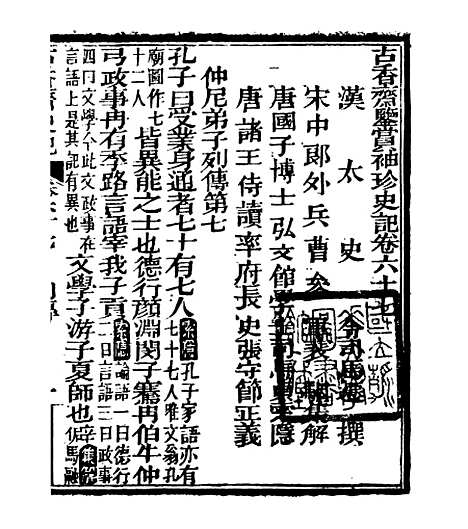 古香齋鑒賞袖珍史記卷六十七
漢太史令司馬遷撰
宋中郎外兵曹參軍裴駰集解
唐國子博士弘文館學士司馬貞索隱
唐諸王侍讀率府長史張守節正義
仲尼弟子列傳第七
孔子曰受業身通者七十有七人索隱孔子家語亦有
七十七人唯文翁孔
廟圖作七
十二人皆異能之士也德行顏淵閔子騫冉伯牛仲
弓政事冉有季路言語宰我子貢索隱論語一曰德行
二曰言語三曰政事
四曰文學今此文政事在
言語上是其記有異也文學子游子夏師也辟集解
馬融